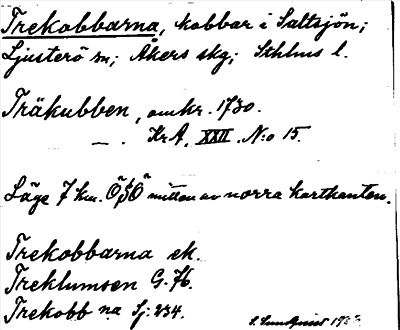 Trekobbarna, kobbar i Saltsjön;
Ljusterö sn; Åkers skg; Sthlms l.
Träkubben, omkr. 1730.
— . KrA. XXII. N:o 15.
Läge 7 km. ÖSÖ mitten av norra kartkanten.
Trekobbarna ek.
Treklumsen G. 76.
Trekobb na Sj: 234.
S. Sundqvist